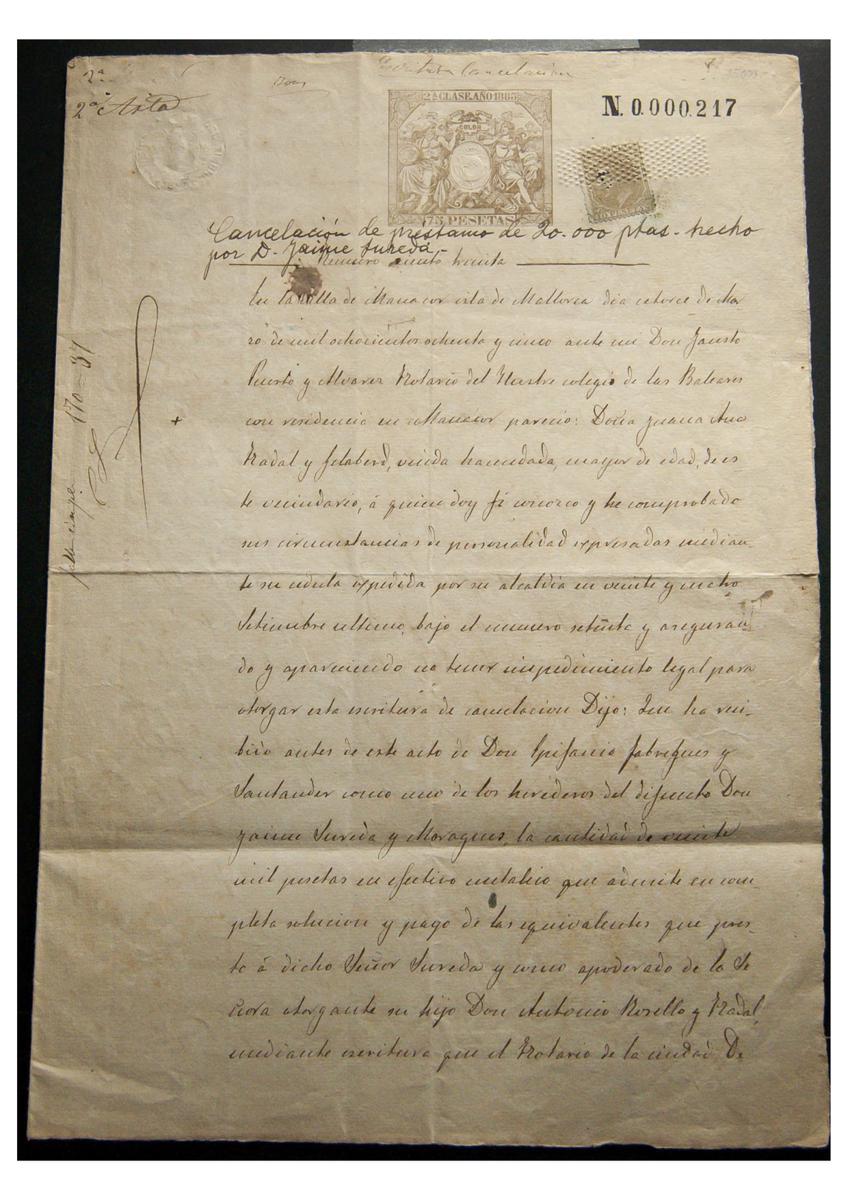 2ª
2ª Asta
Cancelacion
2ª CLASE. AÑO 1885
75 PESETAS
N. 0.000.217
Cancelación de préstamo de 20.000 ptas. hecho
por D. Jaime Sureda.
Numero ciento treinta
En la Villa de Manacor isla de Mallorca dia catorce de Mar
zo de mil ochocientos ochenta y cinco ante mi Don Fausto
Puerto y Alvarez Notario del Ilustre colegio de las Baleares
con residencia en Manacor parecio: Doña Juana Ana
Nadal y Gelabert, viuda hacendada, mayor de edad, de es
te vecindario, á quien doy fé conozco y he comprobado
sus circunstancias de personalidad expresadas median
te su cedula expedida por su alcaldia en veinte y cuatro
Setiembre ultimo, bajo el numero setenta y aseguran
do y apareciendo no tener impedimiento legal para
otorgar esta escritura de cancelacion Dijo: Que ha reci-
bido antes de este acto de Don Epifanio Fabregues y
Santander como uno de los herederos del difunto Don
Jaime Sureda y Moragues, la cantidad de veinte
mil pesetas en efectivo metalico que admite en com-
pleta solucion y pago de las equivalentes que pres-
to á dicho Señor Sureda y como apoderado de la Se
ñora otorgante su hijo Don Antonio Rosello y Nadal,
mediante escritura que el Notario de la ciudad D.
170 = 37